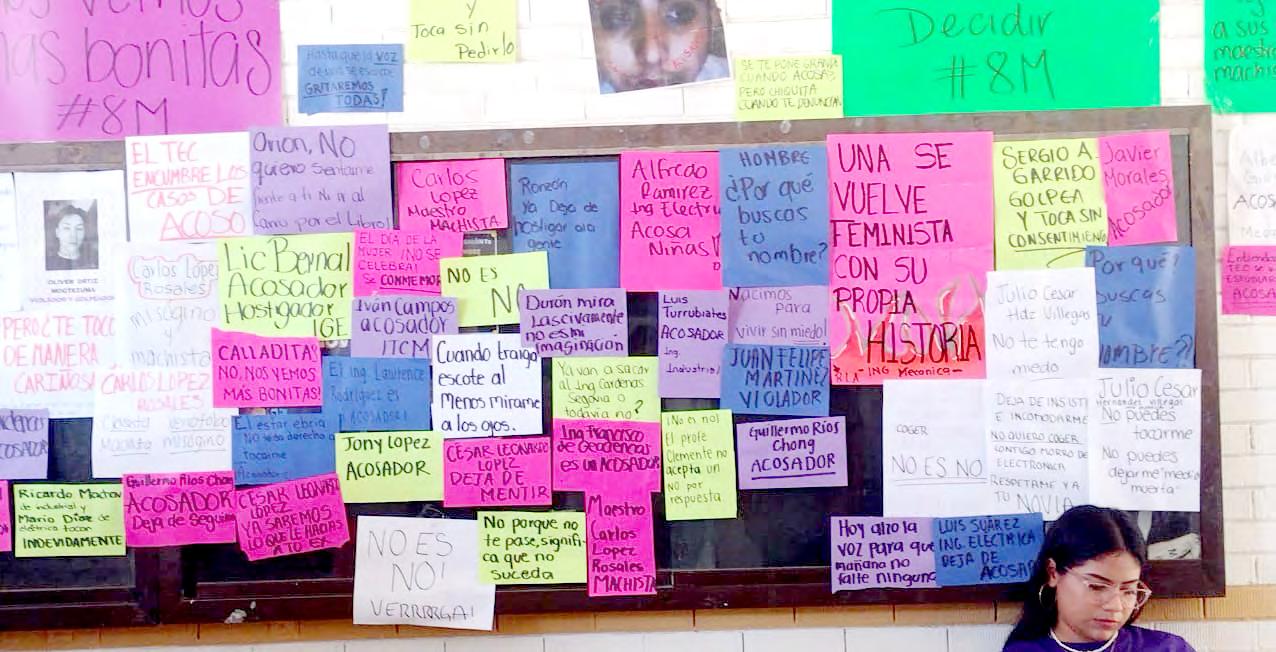 nos vemos
mas bonitas
#8M
Hasta que la VOZ
GRITAREMOS
TODAS!
Y
Toca sin
Pedirlo
SE TE PONE GRANDE
CUANDO ACOSAS
PERO CHIQUITA
CUANDO TE DENUNCIAN
Decidir
#8M
a sus
maestros
machis
OLIVER ORTIZ
MOCTEZUMA
VIOLADOR Y GOLPEADOR
EL TEC
ENCUMBRE LOS
CASOS DE
ACOSO
Orion, NO
quiero sentarme
frente a ti Ni ir al
Carlos
Lopez
Maestro
MACHISTA
Ronzón
Ya Deja de
hostigar a la
gente
Alfredo
Ramirez
Ing Electri
Acosa
Niñas!
HOMBRE
¿Por qué
buscas
tu
nombre?
UNA SE
VUELVE
FEMINISTA
CON SU
PROPIA
HISTORIA
-ING Mecanica-
SERGIO A.
GARRIDO
GOLPEA
Y TOCA SIN
CONSENTIMIENTO
Javier
Morales
Acosador
Carlos Lopez
Rosales
misógino
y
machista
CARLOS LOPEZ
ROSALES
Machista misógino
Lic Bernal
Acosador
Hostigador
IGE
EL DÍA DE LA
MUJER ¡NO SE
CELEBRA!
SE CONMEMOR
NO ES
NO
Iván Campos
acosador
ITCM
Durán mira
Lascivamente
no es mi
imaginación
Luis
Turrubiates
ACOSADOR
Ing.
Industrial
Nacimos
Para
vivir sin miedo!
Julio Cesar
Hdz Villegas
No te tengo
miedo
Por qué?
buscas
tu
nombre??
PERO ¿TE TOCO
DE MANERA
CARIÑOSA
CALLADITA?
NO, NOS VEMOS
MAS BONITAS!
El Ing. Lawrence
Rodriguez es
ACOSADOR!
Cuando traigo
escote al
Menos mirame
a los ojos.
Ya van a sacar
al Ing Cardenas
Segovia o
todavia no?
JUAN FELIPE
MARTINEZ
VIOLADOR
COGER
NO ES NO
DEJA DE INSISTI
E INCOMODARME
NO QUIERO COGER
CONTIGO MORRO DE
ELECTRONICA
RESPETAME Y A
TU NOVIA
Julio Cesar
Hernandez Villegas
No puedes
tocarme
No puedes
dejarme "medio
muerta"
El estar ebria
No te da derecho a
tocarme
Jony Lopez
ACOSADOR
CESAR LEONARDO
LOPEZ
DEJA DE
MENTIR
Ing Francisco
de Cardenas
es un ACOSADOR
¡No es no!
El profe
Clemente no
acepta un
NO por
respuesta
Guillermo Ríos
Chong
ACOSADOR
de industrial y
Mario Díaz de
eléctrica tocan
INDEVIDAMENTE
Guillermo Rios Chong
ACOSADOR
Deja de Seguir
CESAR LEONARDO
LOPEZ
YA SABEMOS
LO QUE LE HACIAS
A TU EX
NO ES
NO!
VERRRRGA!
No porque no
te pase, signifi-
ca que no
suceda
Maestro
Carlos
Lopez
Rosales
MACHISTA
Hoy alzo la
voz para que
mañana no
falte ninguna
LUIS SUÁREZ
ING. ELECTRICA
DEJA DE
ACOSAR